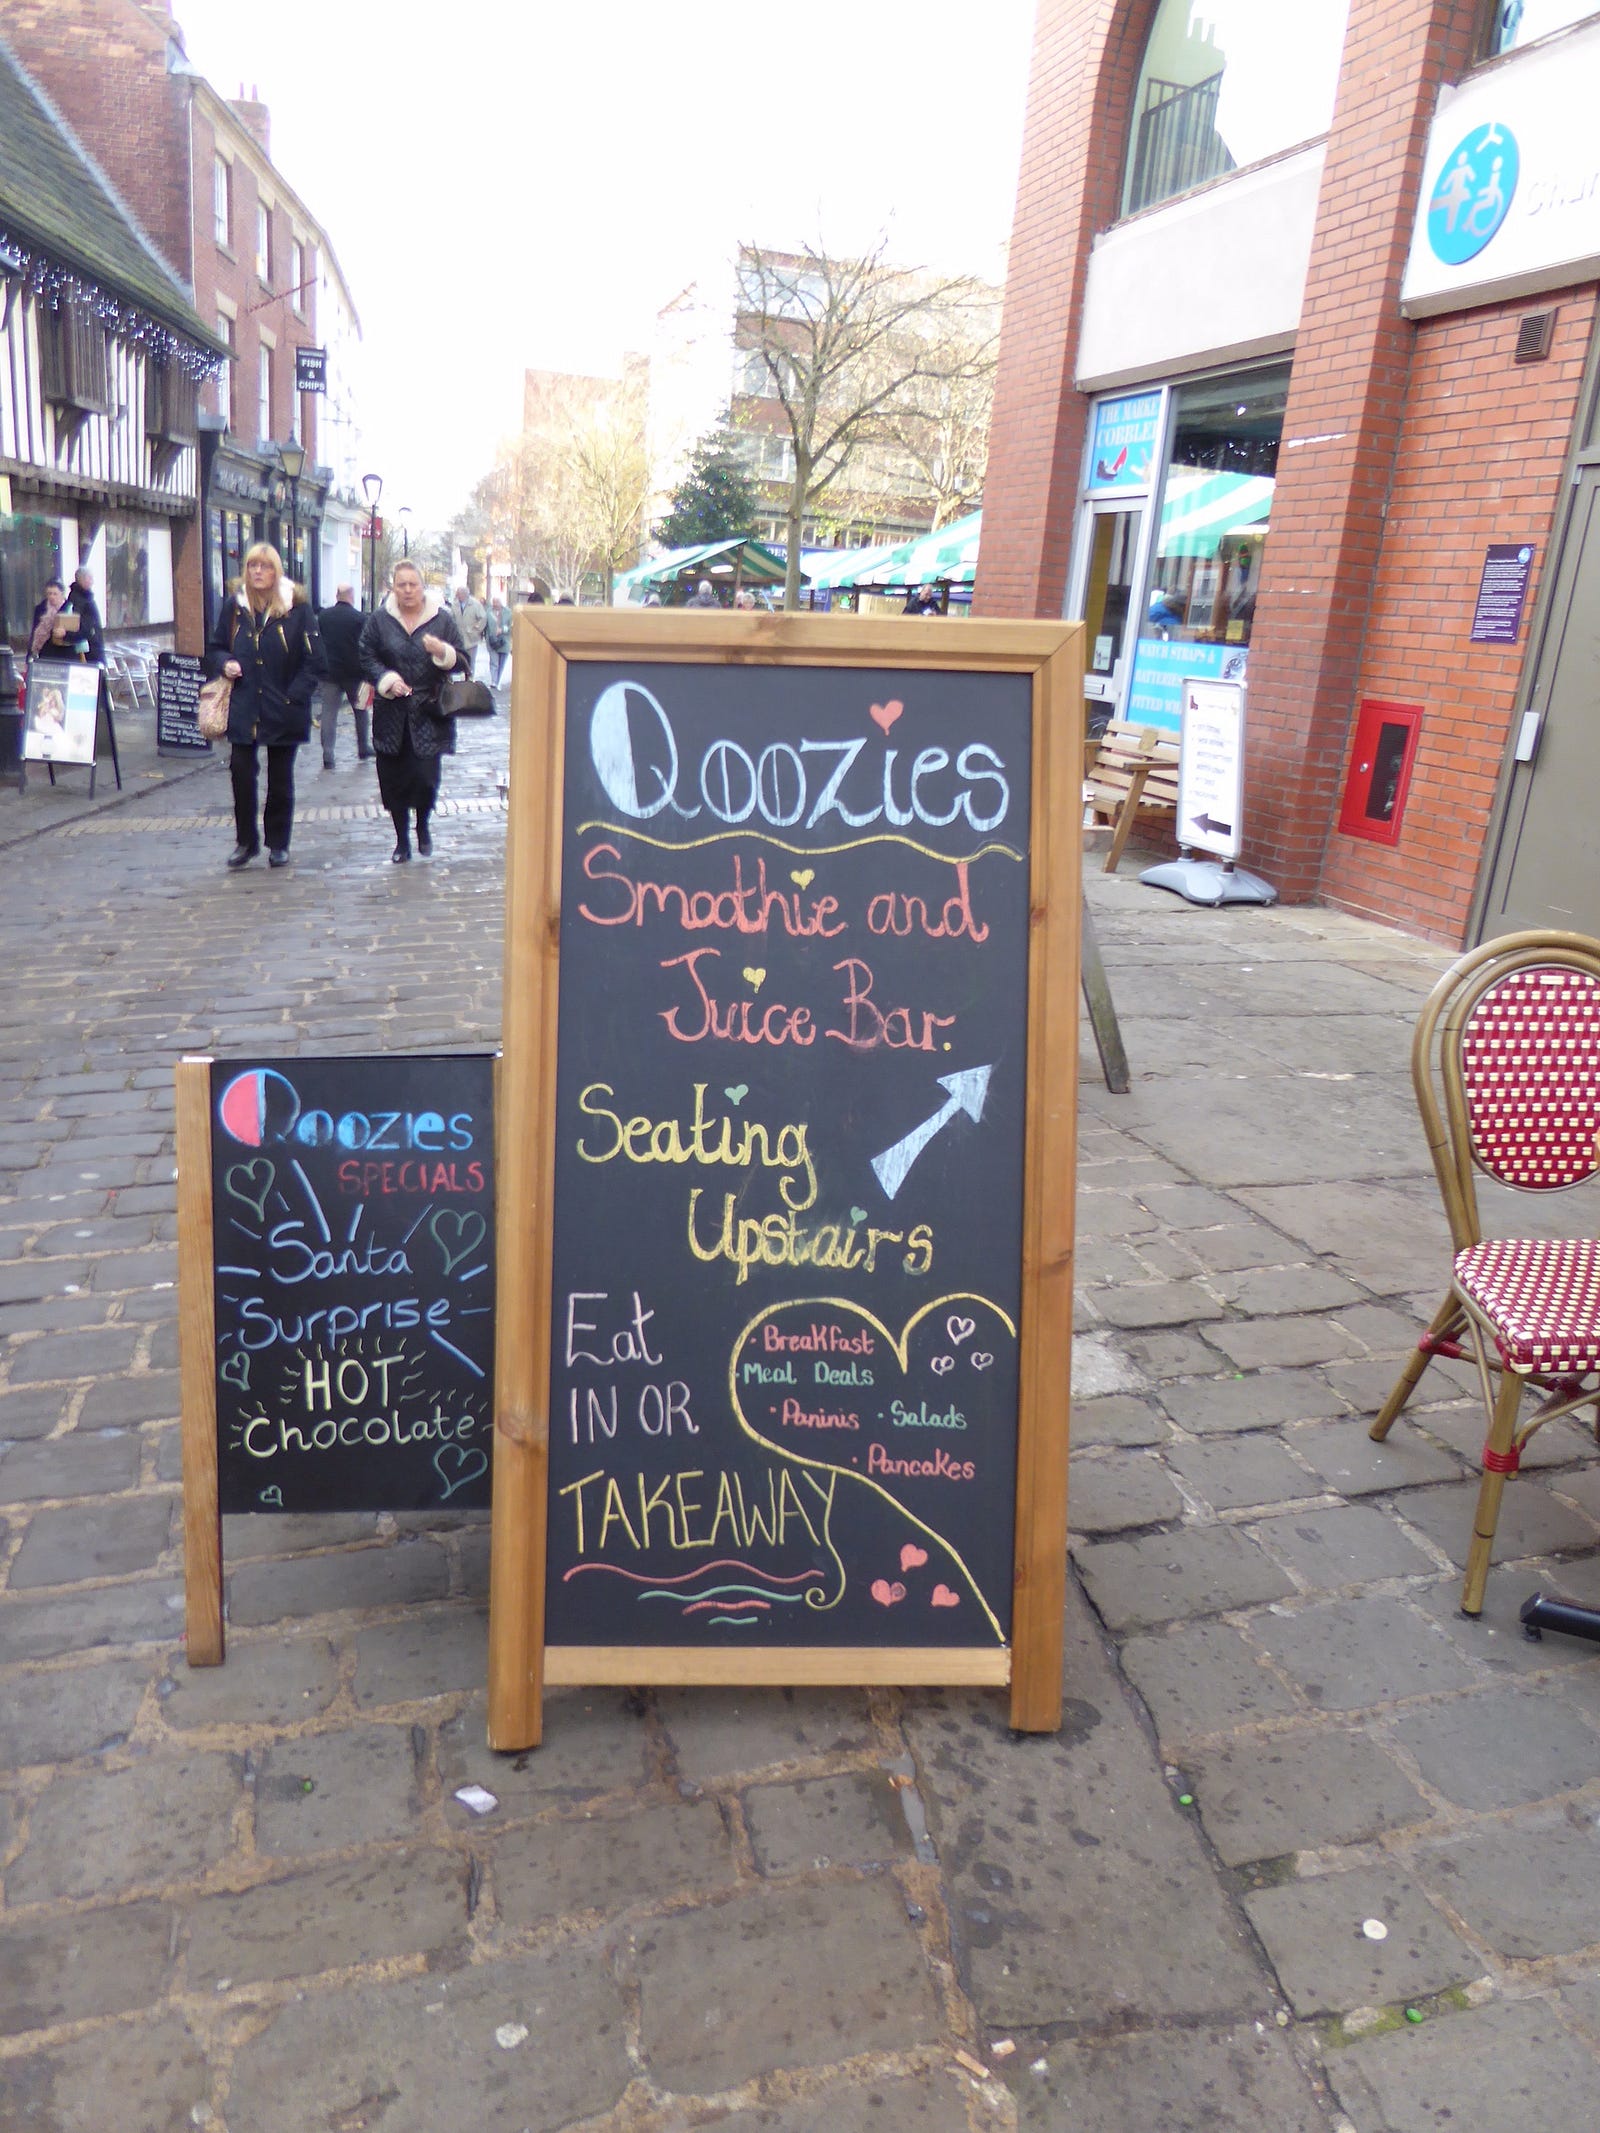 FISH
&
CHIPS
THE MARKE
COBBLE
WATCH STRAPS &
BATTERIE
FITTED WH
Peacock
Qoozies
Smoothie and
Juice Bar.
Seating
Upstairs
Eat
IN OR
TAKEAWAY
· Breakfast
· Meal Deals
· Paninis · Salads
· Pancakes
Qoozies
SPECIALS
Santa
Surprise
HOT
Chocolate